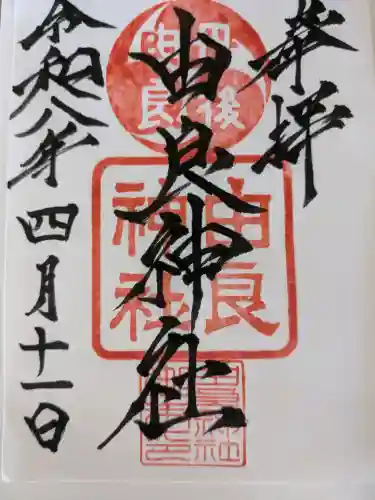 奉拝
由良神社
令和八年四月十一日
丹後
由良
由良
神社